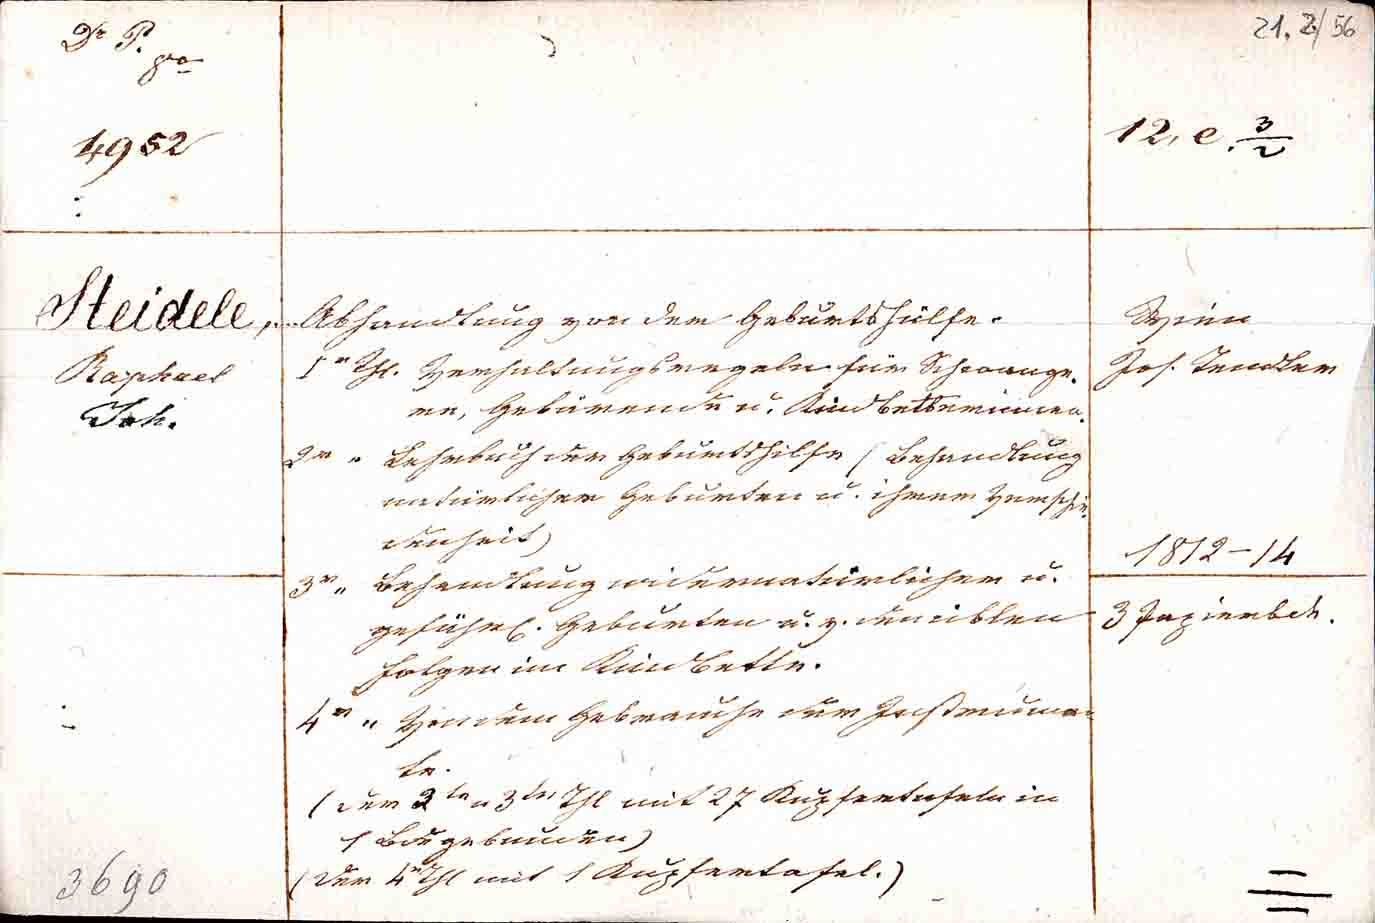 Dr P.
8vo
4952
21. 2/56
12, e. 3/2
Steidele,
Raphael
Joh.
Abhandlung von der Geburtshülfe.
1r Thl. Verhaltungsregeln für Schwange-
re, Gebärende u. Kindbetterinnen.
2r " Lehrbuch der Geburtshilfe (Behandlung
natürlicher Geburten u. ihrer Verschie-
denheit)
3r " Behandlung widernatürlicher u.
gefährl. Geburten u. v. den üblen
Folgen im Kindbette.
4r " Von dem Gebrauche der Instrumen-
te.
(der 2te u 3te Thl mit 27 Kupfertafeln in
1 Bde gebunden)
(Der 4r Thl mit 1 Kupfertafel.)
Wien
Jos. Tendler
1812-14
3 Papierbde.
3690